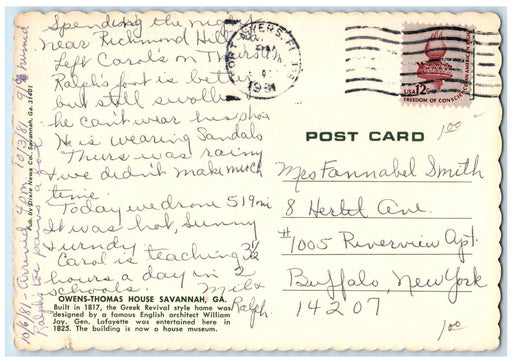 Spending the night
near Richmond Hill, Ga.
Left Carol's on Thurs
Ralph's foot is better
but still swollen
he can't wear his shoe
He is wearing Sandals
Thurs was rainy
& we didn't make much
time.
Today we drove 519 mi
It was hot, sunny
& windy
Carol is teaching 3½
hours a day in 2
schools. Mil &
Ralph
OWENS-THOMAS HOUSE SAVANNAH, GA.
Built in 1817, the Greek Revival style home was
designed by a famous English architect William
Jay. Gen. Lafayette was entertained here in
1825. The building is now a house museum.
Pub. by Dixie News Co., Savannah, Ga. 31401
10/6/81 - Arrived 4 pm 10/3/81 91° humid
FORT MYERS, FL
PM
1981
USA 12c
FREEDOM OF CONSCIENCE-AN AMERICAN RIGHT
POST CARD
1.00
Mrs Fannabel Smith
8 Hertel Ave.
#1005 Riverview Apt.
Buffalo, New York
14207
1.00